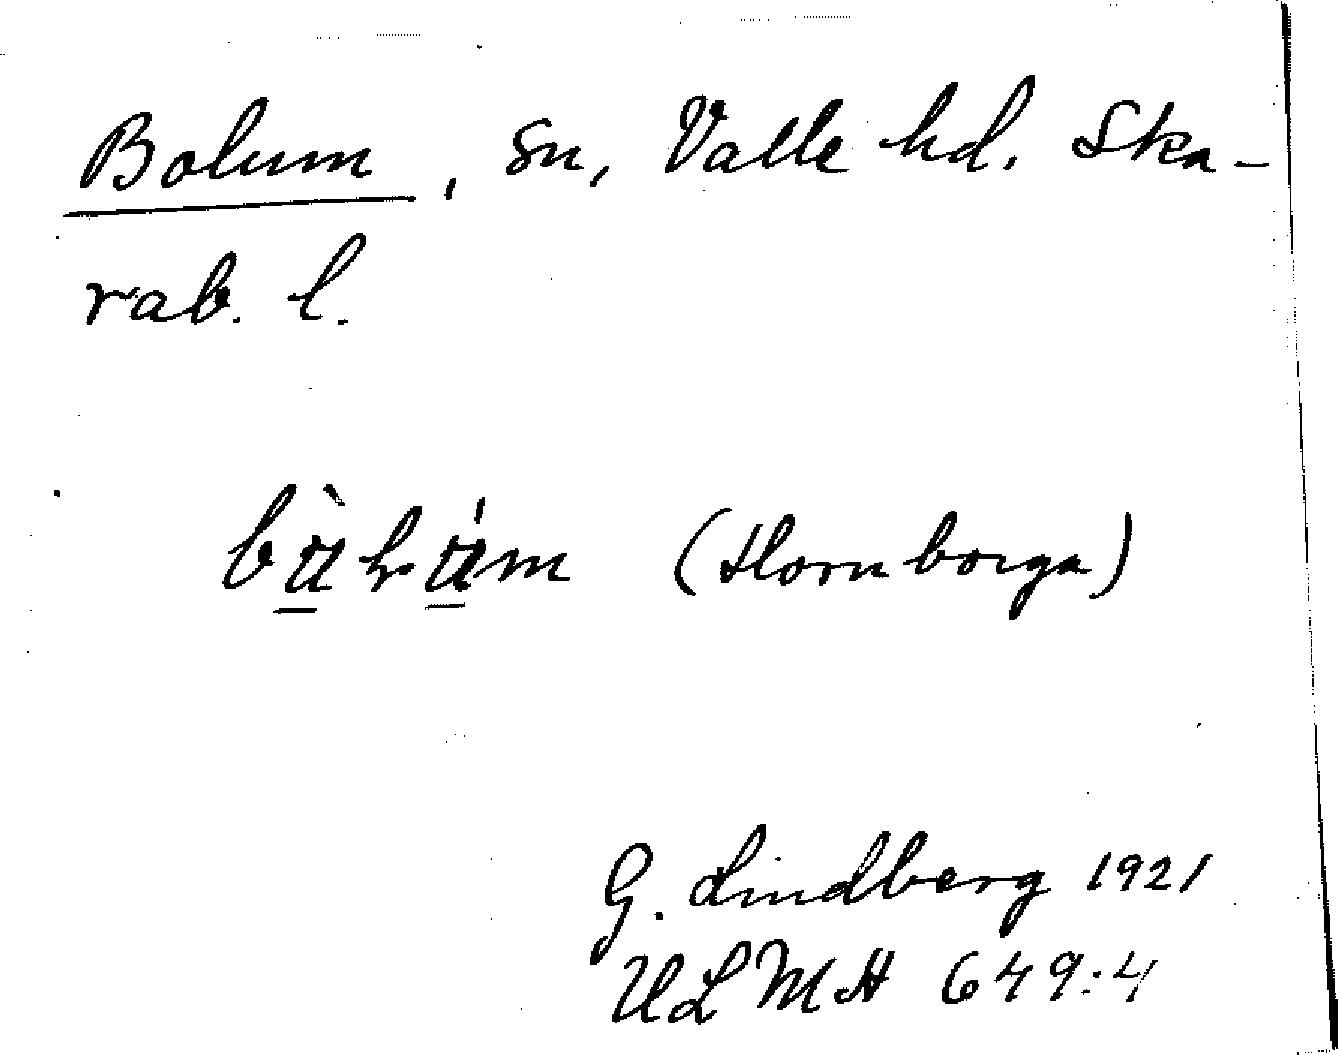 Bolum, sn, Valle hd. Ska-
rab. l.
(Hornborga)
G. Lindberg 1921
ULMA 649:4